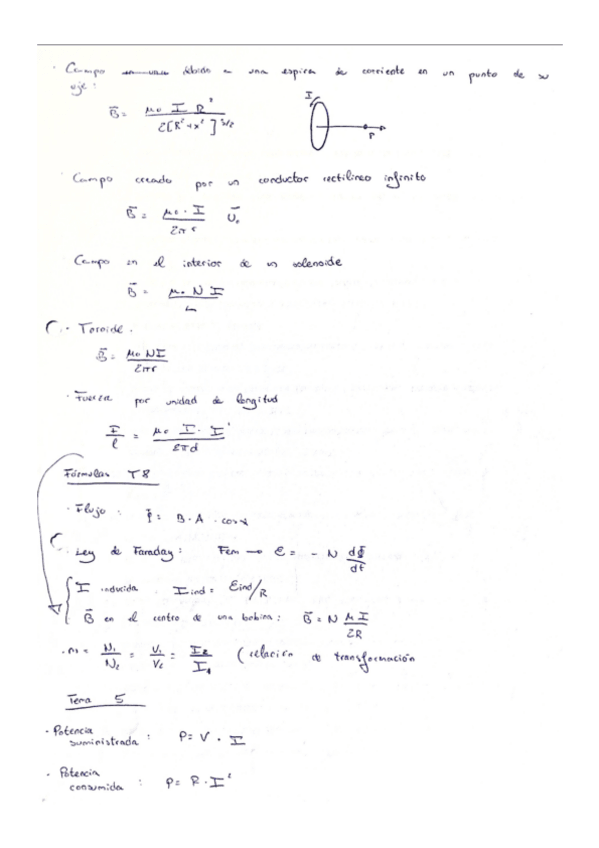 · Campo debido a una espira de corriente en un punto de su
eje:
B⃗ = μ₀ I R² / 2[R²+x²]^3/2
I
P
· Campo creado por un conductor rectilíneo infinito
B⃗ = μ₀ · I / 2π r
· Campo en el interior de un solenoide
B⃗ = μ₀ N I / L
· Toroide.
B⃗ = μ₀ NI / 2πr
· Fuerza por unidad de longitud
F/l = μ₀ I · I' / 2πd
Fórmulas T8
· Flujo: Φ = B · A · cos α
· Ley de Faraday: Fem → ε = - N dΦ/dt
I inducida. I ind = εind/R
B⃗ en el centro de una bobina: B⃗ = N μ I / 2R
· m = N₁/N₂ = V₁/V₂ = I₂/I₁ (relación de transformación
Tema 5
· Potencia
suministrada: P = V · I
· Potencia
consumida: P = R · I²